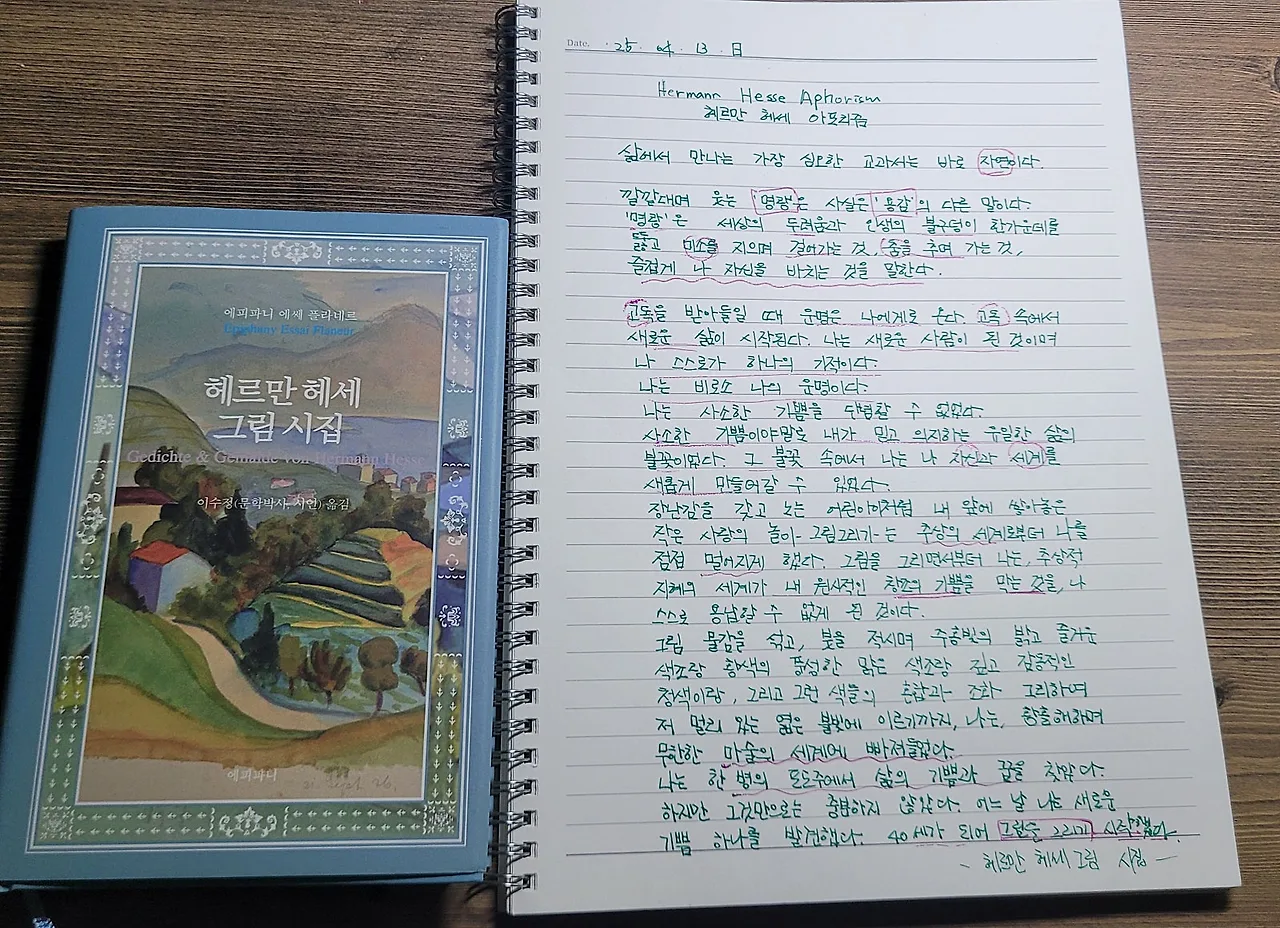 에피파니 에쎄 플라네르
Epiphany Essai Flaneur
헤르만 헤세
그림 시집
Gedichte & Gemälde von Hermann Hesse
이수정(문학박사, 시인) 옮김
에피파니
Date. 25 · 04 · 13 · 日
Hermann Hesse Aphorism
헤르만 헤세 아포리즘
삶에서 만나는 가장 심오한 교과서는 바로 자연이다.
깔깔대며 웃는 '명랑'은 사실은 '용감'의 다른 말이다.
'명랑'은 세상의 두려움과 인생의 불구덩이 한가운데를
뚫고 미소를 지으며 걸어가는 것, 춤을 추며 가는 것,
즐겁게 나 자신을 바치는 것을 말한다.
고독을 받아들일 때 운명은 나에게로 온다. 고독 속에서
새로운 삶이 시작된다. 나는 새로운 사람이 된 것이며
나 스스로가 하나의 기적이다.
나는 비로소 나의 운명이다.
나는 사소한 기쁨을 단념할 수 없었다.
사소한 기쁨이야말로 내가 믿고 의지하는 유일한 삶의
불꽃이었다. 그 불꽃 속에서 나는 나 자신과 세계를
새롭게 만들어갈 수 있었다.
장난감을 갖고 노는 어린아이처럼 내 앞에 쌓아놓은
작은 사랑의 놀이-그림그리기-는 추상의 세계로부터 나를
점점 멀어지게 했다. 그림을 그리면서부터 나는, 추상적
지혜의 세계가 내 원시적인 창조의 기쁨을 막는 것을, 나
스스로 용납할 수 없게 된 것이다.
그림 물감을 섞고, 붓을 적시며 주홍빛의 밝고 즐거운
색조랑 황색의 풍성한 맑은 색조랑 깊고 감동적인
청색이랑, 그리고 그런 색들의 혼합과 조화 그리하여
저 멀리 있는 엷은 불빛에 이르기까지, 나는, 황홀해하며
무한한 마술의 세계에 빠져들었다.
나는 한 병의 포도주에서 삶의 기쁨과 꿈을 찾았다.
하지만 그것만으로는 충분하지 않았다. 어느 날 나는 새로운
기쁨 하나를 발견했다. 40세가 되어 그림을 그리기 시작했다.
- 헤르만 헤세 그림 시집 -